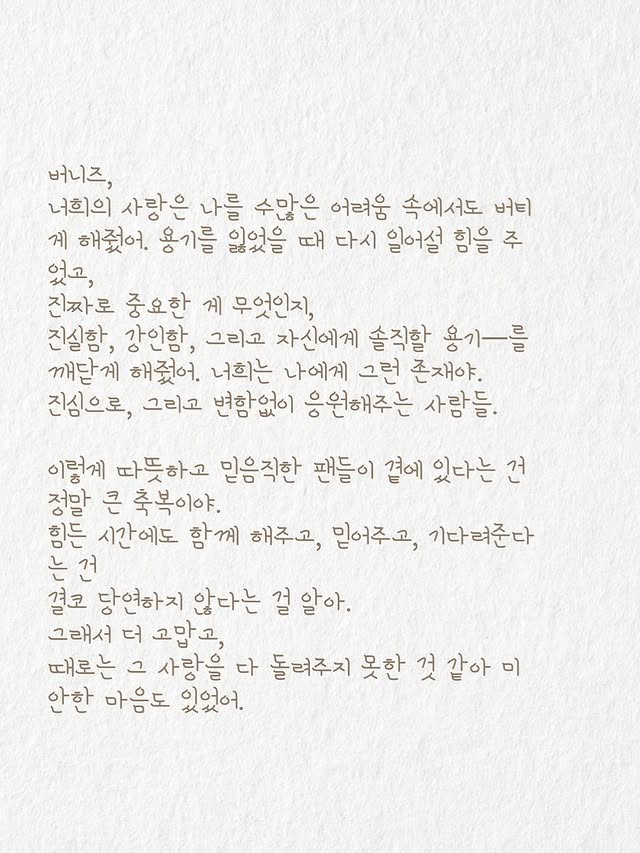 버니즈,
너희의 사랑은 나를 수많은 어려움 속에서도 버티
게 해줬어. 용기를 잃었을 때 다시 일어설 힘을 주
었고,
진짜로 중요한 게 무엇인지,
진실함, 강인함, 그리고 자신에게 솔직할 용기—를
깨닫게 해줬어. 너희는 나에게 그런 존재야.
진심으로, 그리고 변함없이 응원해주는 사람들.

이렇게 따뜻하고 믿음직한 팬들이 곁에 있다는 건
정말 큰 축복이야.
힘든 시간에도 함께 해주고, 믿어주고, 기다려준다
는 건
결코 당연하지 않다는 걸 알아.
그래서 더 고맙고,
때로는 그 사랑을 다 돌려주지 못한 것 같아 미
안한 마음도 있었어.